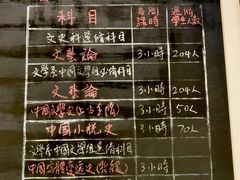 科目 每周課時 選修學生人數
文史科選修科目
文藝論 3小時 204人
文學系中國文學組必修科目
文藝論 3小時 204人
中國文學史 3小時 50人
中國小說史 3小時 70人
文學系中國文學組選修科目
中國字體變遷史 3小時